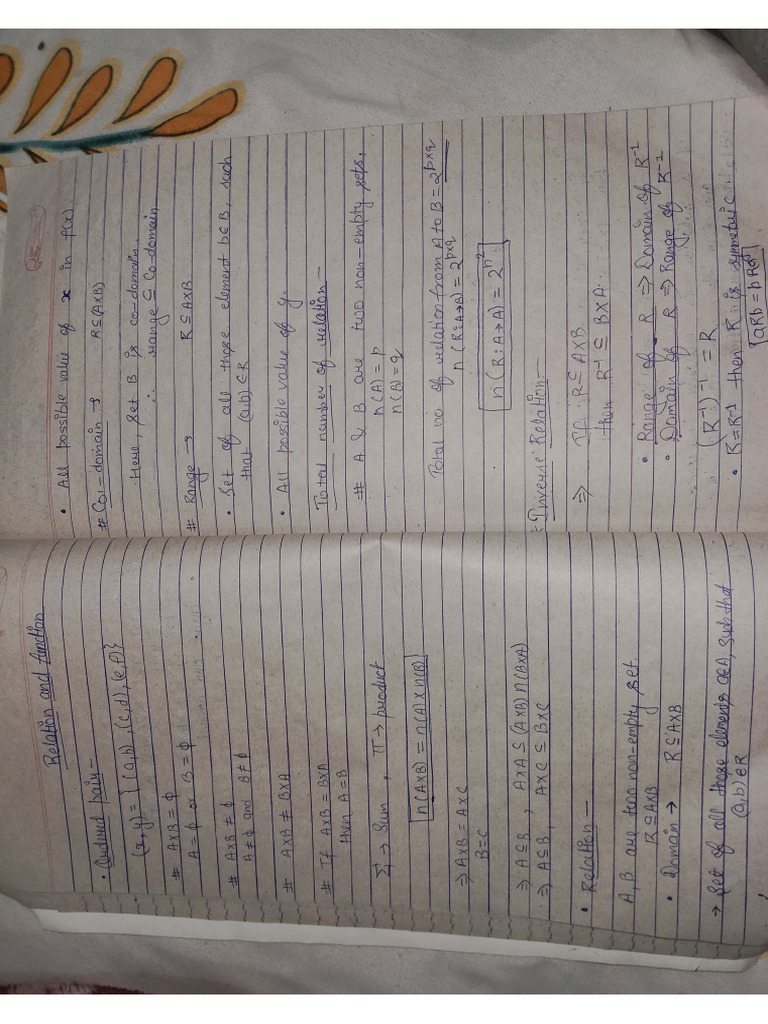 Relation and function
• Ordered pair –
(x,y) = {(a,b),(c,d),(e,f)}
# A×B = ϕ
A = ϕ or B = ϕ
# A×B ≠ ϕ
A ≠ ϕ and B ≠ ϕ
# A×B ≠ B×A
# If A×B = B×A
then A=B
Σ → Sum , Π → product
n(A×B) = n(A)×n(B)
⇒ A×B = A×C
B=C
⇒ A⊆B , A×A ⊆ (A×B)∩(B×A)
⇒ A⊆B, A×C ⊆ B×C
• Relation –
A,B are two non-empty set.
R⊆A×B
• Domain → R⊆A×B
→ Set of all those elements a∈A, such that
(a,b)∈R
• All possible value of x in f(x)
# Co-domain → R⊆(A×B)
Here, set B is co-domain.
∴ range ⊆ Co-domain
# Range → R⊆A×B
• Set of all those element b∈B, such
that (a,b)∈R
• All possible value of y.
Total number of relation –
# A & B are two non-empty sets.
n(A)=p
n(B)=q
Total no of relation from A to B = 2^{p×q}
n(R:A→B) = 2^{p×q}
n(R:A→A) = 2^{n²}
Inverse Relation –
⇒ If R⊆A×B
then R⁻¹ ⊆ B×A.
• Range of R ⇒ Domain of R⁻¹
• Domain of R ⇒ Range of R⁻¹
(R⁻¹)⁻¹ = R
• R=R⁻¹ then R is symetric